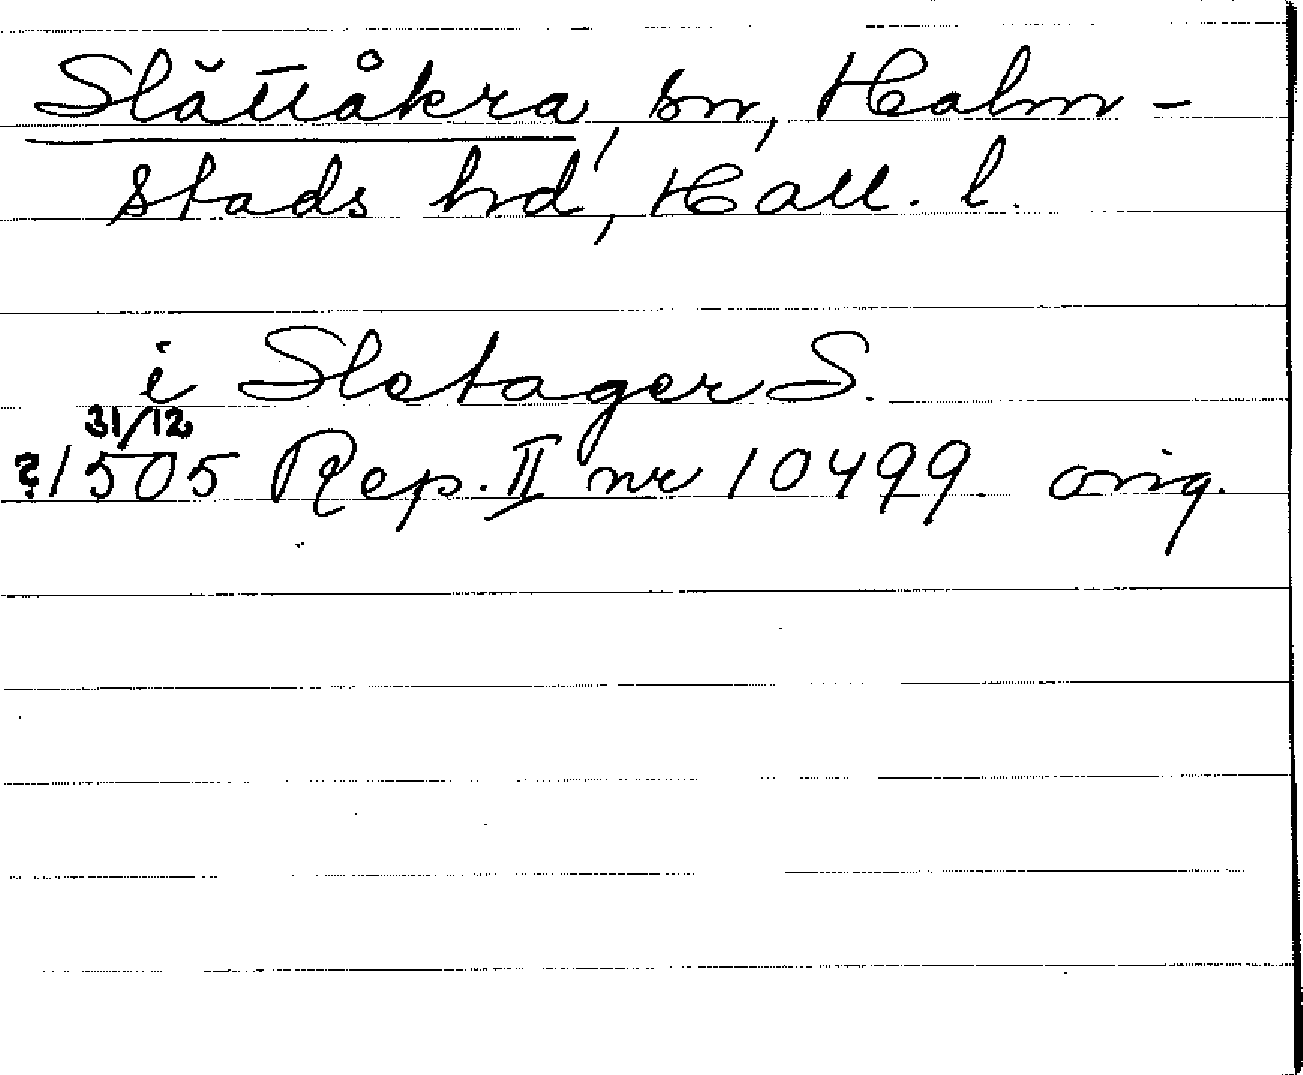 Slättåkra, sn, Halm-
stads hd, Hall. l.
i Sletager S.
31/12
?1505 Rep. II nr 10499 orig.